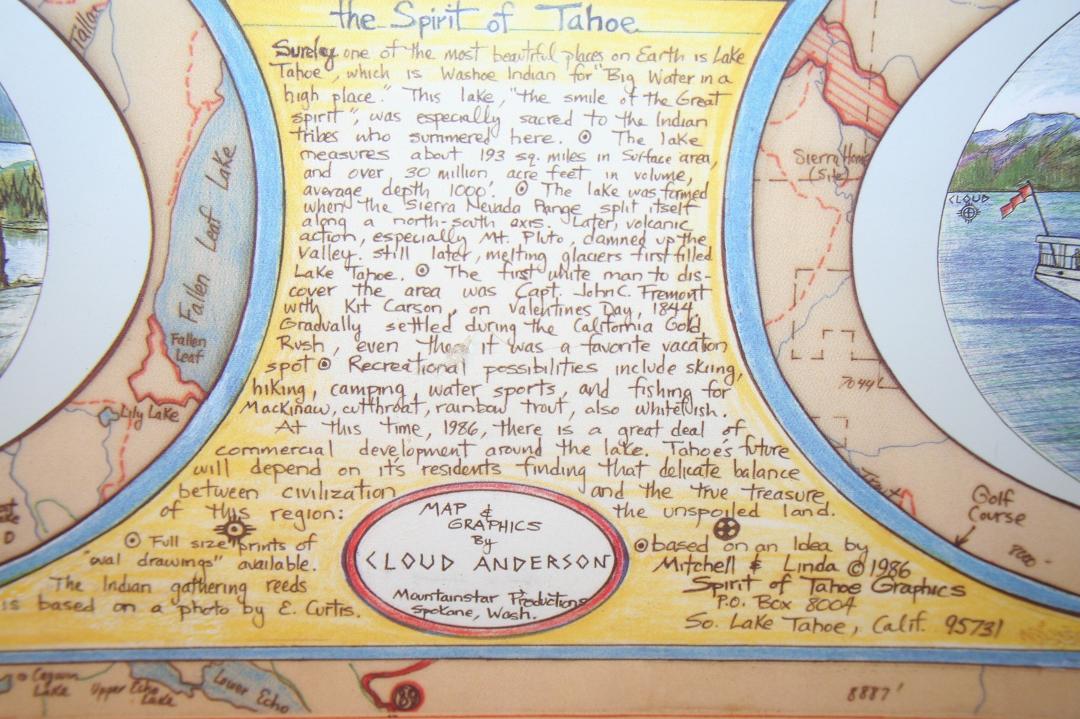 the Spirit of Tahoe
Surely one of the most beautiful places on Earth is Lake
Tahoe, which is Washoe Indian for "Big Water in a
high place." This lake, "the smile of the Great
spirit", was especially sacred to the Indian
tribes who summered here. The lake
measures about 193 sq. miles in surface area,
and over 30 million acre feet in volume,
average depth 1000'. The lake was formed
when the Sierra Nevada Range split itself
along a north-south axis. Later, volcanic
action, especially Mt. Pluto, damned up the
Valley. still later, melting glaciers first filled
Lake Tahoe. The first white man to dis-
cover the area was Capt. John C. Fremont
with Kit Carson, on Valentines Day, 1844.
Gradually settled during the California Gold
Rush, even then it was a favorite vacation
spot Recreational possibilities include skiing,
hiking, camping, water sports, and fishing for
Mackinaw, cutthroat, rainbow trout, also whitefish.
At this time, 1986, there is a great deal of
commercial development around the lake. Tahoe's future
will depend on it's residents finding that delicate balance
between civilization and the true treasure
of this region: the unspoiled land.
Full size prints of
"oval drawings" available.
The Indian gathering reeds
is based on a photo by E. Curtis.
MAP &
GRAPHICS
By
CLOUD ANDERSON
Mountainstar Productions
Spokane, Wash.
based on an Idea by
Mitchell & Linda © 1986
Spirit of Tahoe Graphics
P.O. Box 8004
So. Lake Tahoe, Calif. 95731
Tallac
Fallen Leaf Lake
Fallen
Leaf
Lily Lake
Sierra House
(Site)
CLOUD
7044
Golf
Course
7000
Lake
Upper Echo
Lake
Lower Echo
8887'